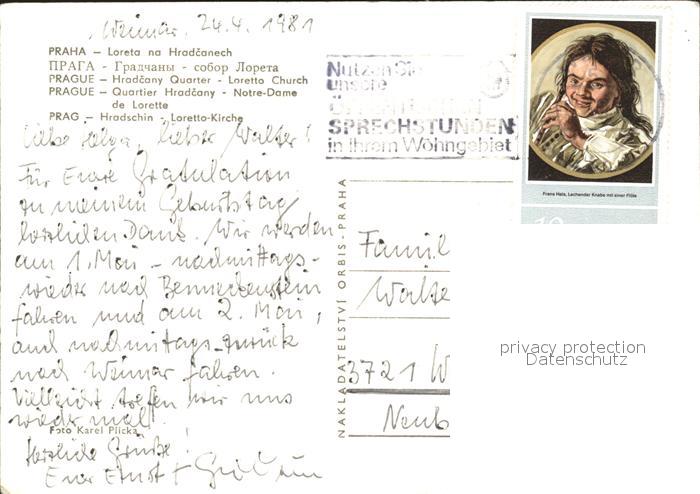 Weimar, 24.4.1981
PRAHA – Loreta na Hradčanech
ПРАГА - Градчаны - собор Лорета
PRAGUE – Hradčany Quarter - Loretto Church
PRAGUE – Quartier Hradčany - Notre-Dame
de Lorette
PRAG – Hradschin - Loretto-Kirche
Liebe Helga, lieber Walter!
Für Eure Gratulation
zu meinem Geburtstag
herzlichen Dank. Wir werden
am 1. Mai – nachmittags -
wieder nach Benneckenstein
fahren und am 2. Mai,
auch nachmittags - zurück
nach Weimar fahren.
Vielleicht treffen wir uns
wieder mal.
Foto Karel Plicka
Herzliche Grüße!
Euer Ernst +
NAKLADATELSTVÍ ORBIS - PRAHA
Nutzen Sie
unsere
ÖFFENTLICHEN
SPRECHSTUNDEN
in Ihrem Wohngebiet
Frans Hals, Lachender Knabe mit einer Flöte
10
Famil
Walte
3721 W
Neub
privacy protection
Datenschutz